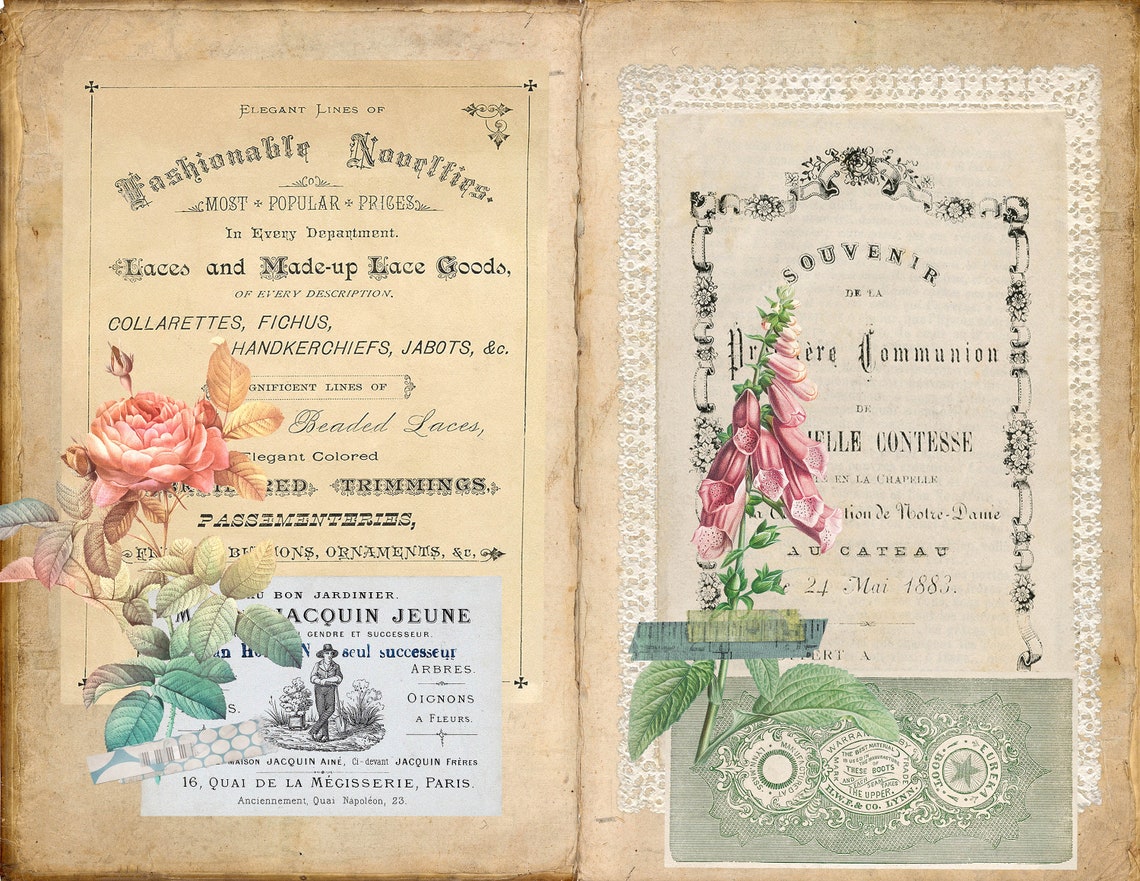 ELEGANT LINES OF
Fashionable Novelties.
MOST POPULAR PRICES
In Every Department.
Laces and Made-up Lace Goods,
OF EVERY DESCRIPTION.
COLLARETTES, FICHUS,
HANDKERCHIEFS, JABOTS, &c.
GNIFICENT LINES OF
Beaded Laces,
Elegant Colored
RED TRIMMINGS,
PASSEMENTERIES,
ORNAMENTS, &c,
AU BON JARDINIER.
JACQUIN JEUNE
GENDRE ET SUCCESSEUR.
seul successeur
ARBRES.
OIGNONS
A FLEURS.
MAISON JACQUIN AINÉ, Ci-devant JACQUIN FRÈRES
16, QUAI DE LA MÉGISSERIE, PARIS.
Anciennement, Quai Napoléon, 23.
SOUVENIR
DE LA
Pr ère Communion
DE
ELLE CONTESSE
TE EN LA CHAPELLE
tion de Notre-Dame
AU CATEAU
e 24 Mai 1883.
ERT A
WARRANTED BY
THE BEST MATERIAL
IS USED IN THE MANUFACTURE
OF
THESE BOOTS
AND
EACH SEAM TAKES
THE UPPER.
TRADE MARK
H.W.F. & CO. LYNN.
MANUFACTURED AT
EUREKA
BOOT